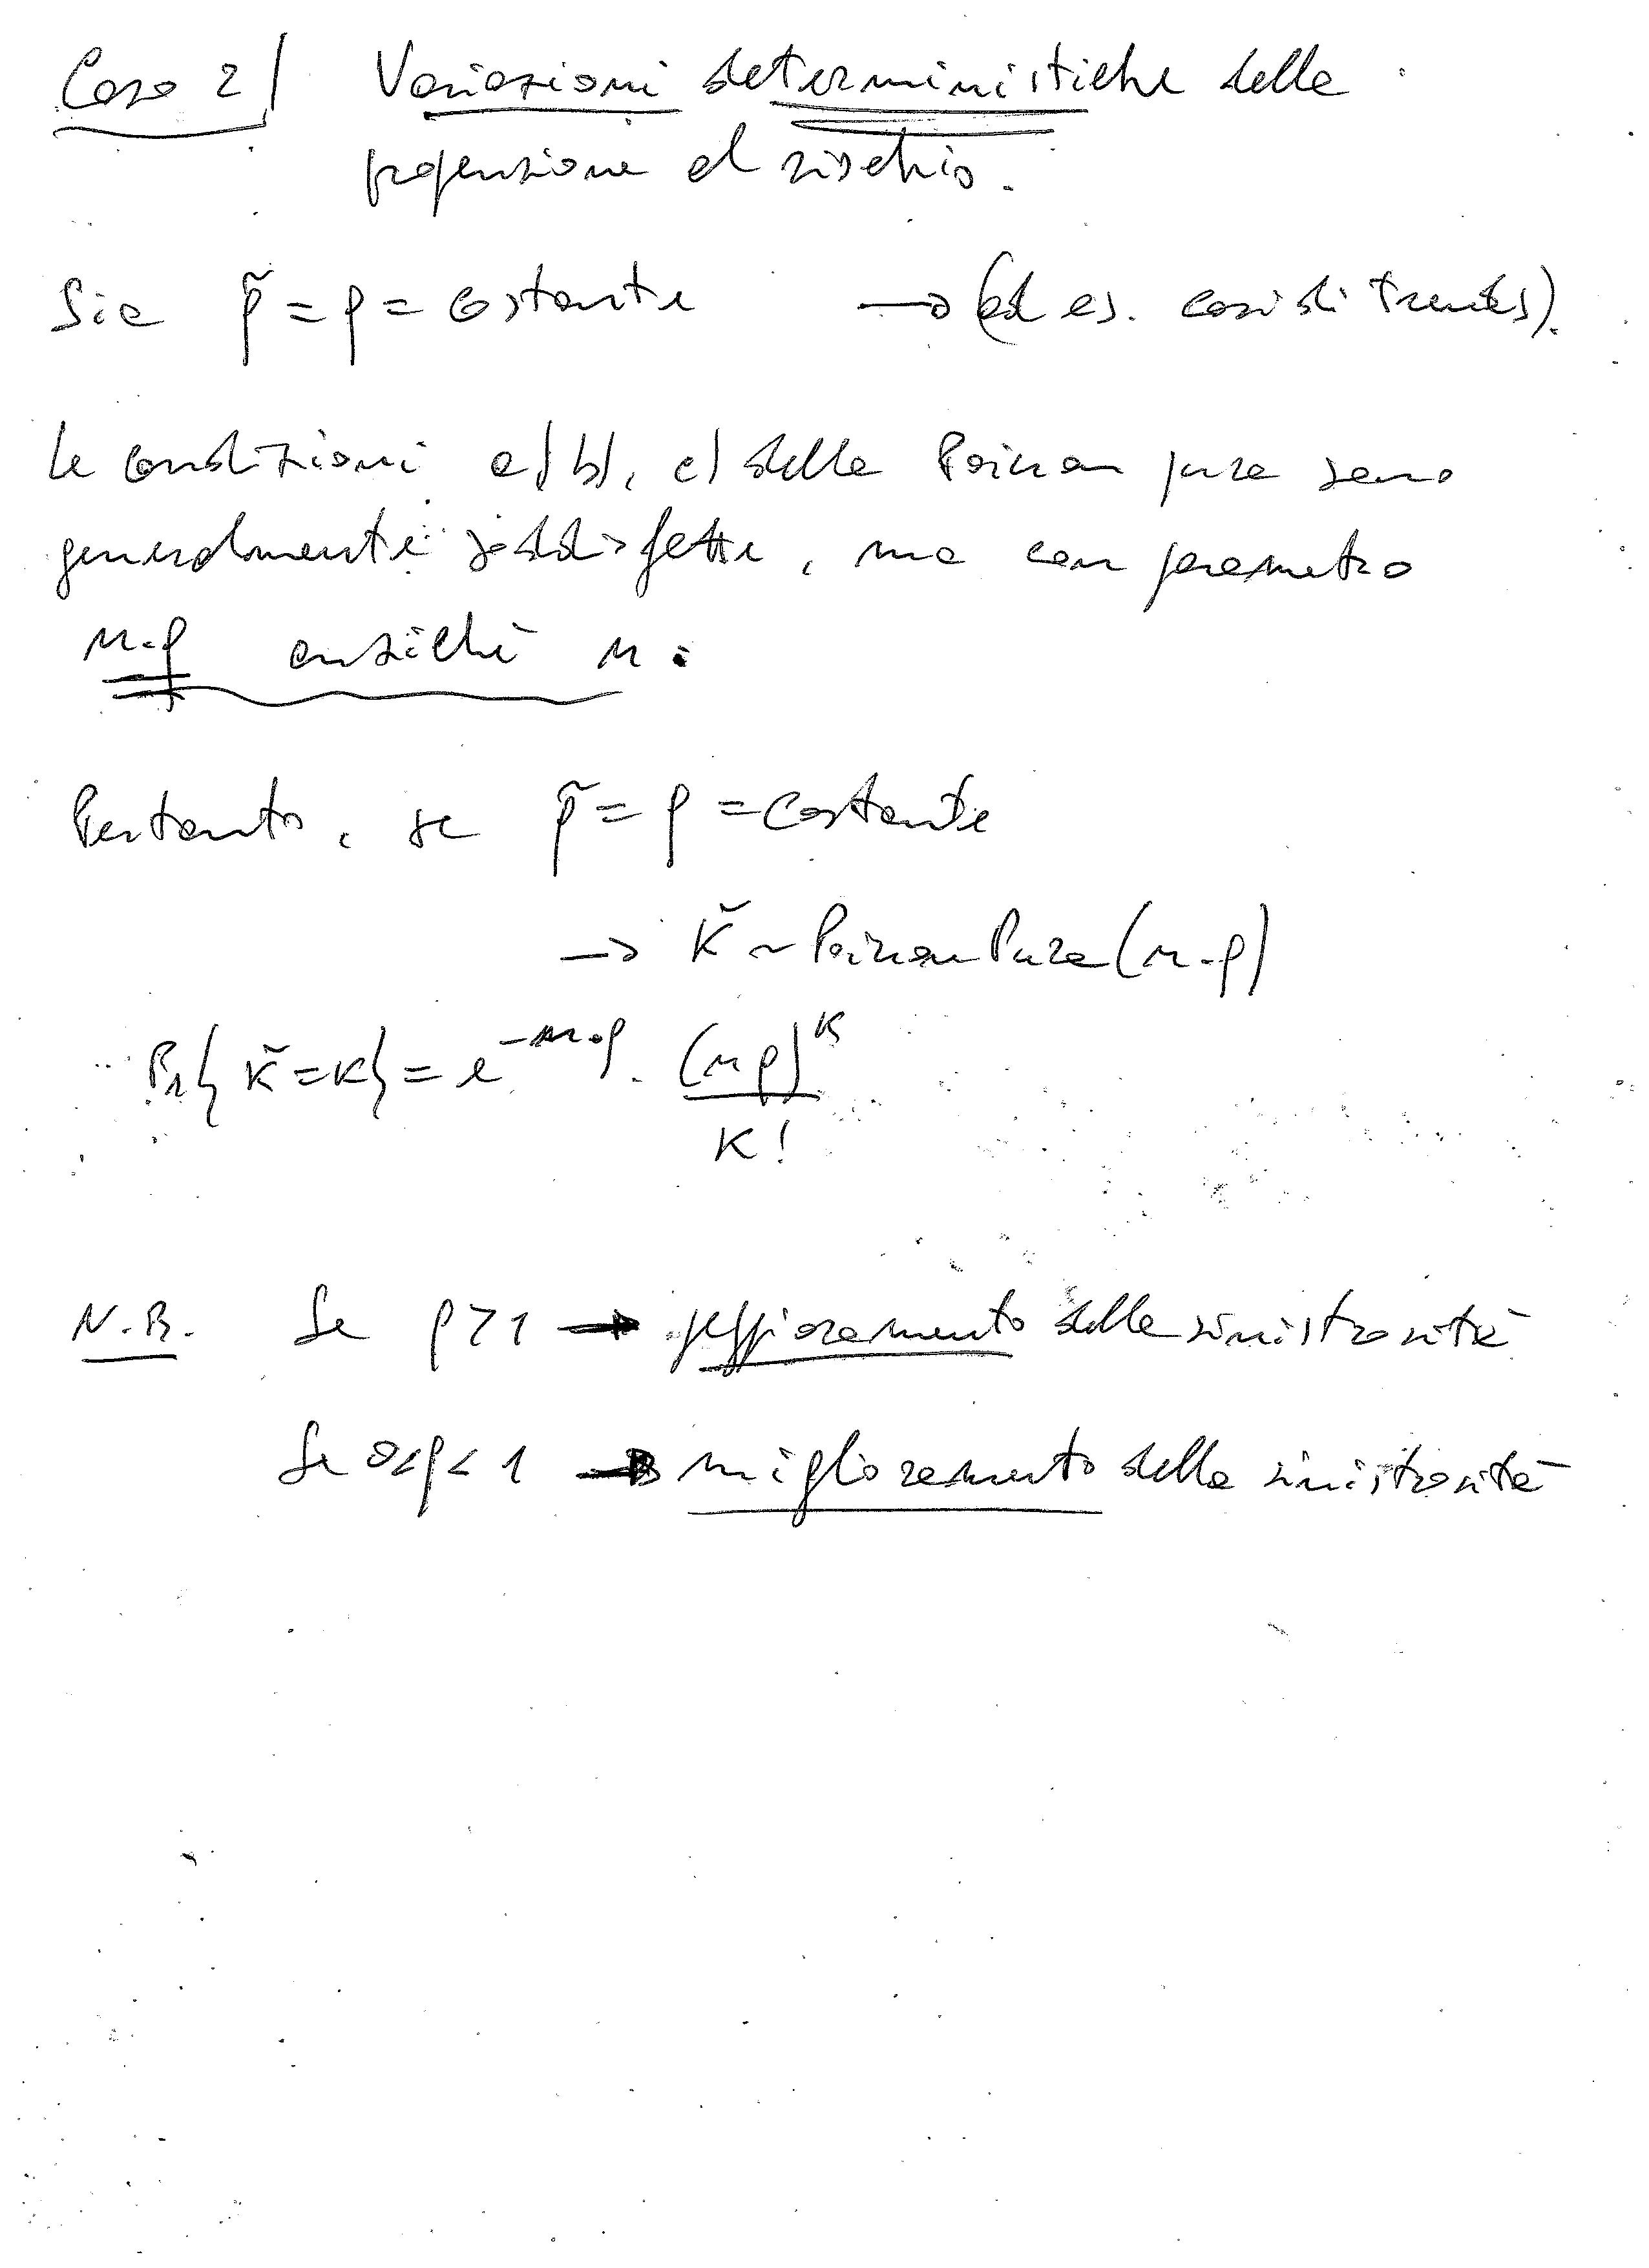 Caso 2) Variazioni deterministiche della
propensione al rischio.
Sia ρ̃ = ρ = costante → (ad es. casi di trends).
Le condizioni a) b), c) della Poisson pura sono
generalmente soddisfatte, ma con parametro
n·ρ anziché n.
Pertanto, se ρ̃ = ρ = costante
→ K̃ ~ Poisson Pura (n·ρ)
Pr{K̃=K} = e^{-n·ρ} · (nρ)^K / K!
N.B. Se ρ > 1 → peggioramento della sinistrosità
Se 0<ρ<1 → miglioramento della sinistrosità